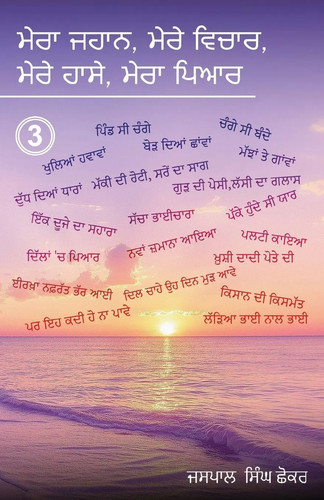 ਮੇਰਾ ਜਹਾਨ, ਮੇਰੇ ਵਿਚਾਰ,
ਮੇਰੇ ਹਾਸੇ, ਮੇਰਾ ਪਿਆਰ
3
ਪਿੰਡ ਸੀ ਚੰਗੇ
ਚੰਗੇ ਸੀ ਬੰਦੇ
ਖੁਲਿਆਂ ਹਵਾਵਾਂ
ਬੋੜ ਦਿਆਂ ਛਾਂਵਾਂ
ਮੱਝਾਂ ਤੇ ਗਾਂਵਾਂ
ਦੁੱਧ ਦਿਆਂ ਧਾਰਾਂ
ਮੱਕੀ ਦੀ ਰੋਟੀ, ਸਰੋਂ ਦਾ ਸਾਗ
ਗੁੜ ਦੀ ਪੇਸੀ,ਲੱਸੀ ਦਾ ਗਲਾਸ
ਇੱਕ ਦੂਜੇ ਦਾ ਸਹਾਰਾ
ਸੱਚਾ ਭਾਈਚਾਰਾ
ਪੱਕੇ ਹੁੰਦੇ ਸੀ ਯਾਰ
ਦਿੱਲਾਂ 'ਚ ਪਿਆਰ
ਨਵਾਂ ਜ਼ਮਾਨਾ ਆਇਆ
ਪਲਟੀ ਕਾਇਆ
ਈਰਖ਼ਾ ਨਫ਼ਰੱਤ ਭੱਰ ਆਈ
ਦਿਲ ਚਾਹੇ ਉਹ ਦਿਨ ਮੁੜ ਆਵੇ
ਖ਼ੁਸ਼ੀ ਦਾਦੀ ਪੋਤੇ ਦੀ
ਪਰ ਇਹ ਕਦੀ ਹੋ ਨਾ ਪਾਵੇ
ਕਿਸਾਨ ਦੀ ਕਿਸਮੱਤ
ਲੱੜਿਆ ਭਾਈ ਨਾਲ ਭਾਈ
ਜਸਪਾਲ ਸਿੰਘ ਛੋਕਰ